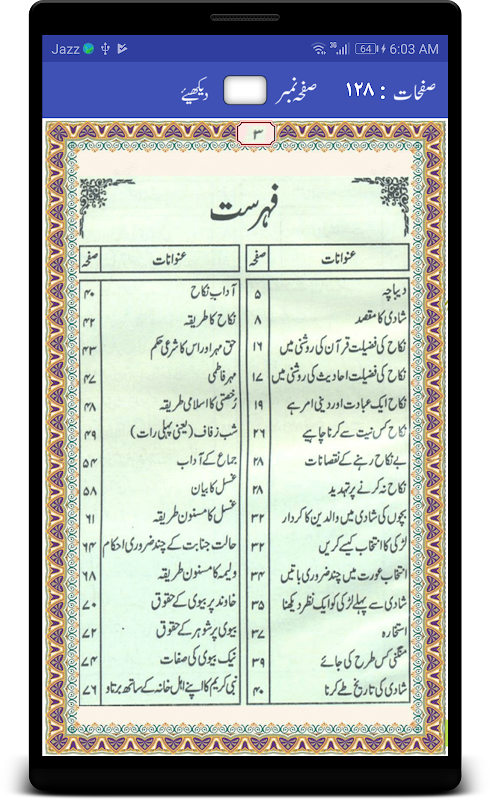 Jazz 3G 64 6:03 AM
صفحات : ۱۲۸ صفحہ نمبر دیکھیئے
۳
فہرست
عنوانات صفحہ
دیباچہ ۵
شادی کا مقصد ۸
نکاح کی فضیلت قرآن کی روشنی میں ۱۶
نکاح کی فضیلت احادیث کی روشنی میں ۱۷
نکاح ایک عبادت اور دینی امر ہے ۱۹
نکاح کس نیت سے کرنا چاہیے ۲۶
بے نکاح رہنے کے نقصانات ۲۸
نکاح نہ کرنے پر تہدید ۲۸
بچوں کی شادی میں والدین کا کردار ۳۲
لڑکی کا انتخاب کیسے کریں ۳۲
انتخاب عورت میں چند ضروری باتیں ۳۴
شادی سے پہلے لڑکی کو ایک نظر دیکھنا ۳۵
استخارہ ۳۷
منگنی کس طرح کی جائے ۳۹
شادی کی تاریخ طے کرنا ۴۰
عنوانات صفحہ
آداب نکاح ۴۰
نکاح کا طریقہ ۴۲
حق مہر اور اس کا شرعی حکم ۴۳
مہر فاطمی ۴۷
رُخصتی کا اسلامی طریقہ ۴۸
شب زفاف (یعنی پہلی رات) ۴۹
جماع کے آداب ۵۴
غسل کا بیان ۵۸
غسل کا مسنون طریقہ ۶۱
حالت جنابت کے چند ضروری احکام ۶۴
ولیمہ کا مسنون طریقہ ۶۸
خاوند پر بیوی کے حقوق ۷۰
بیوی پر شوہر کے حقوق ۷۲
نیک بیوی کی صفات ۷۴
نبی کریم کا اپنے اہل خانہ کے ساتھ برتاو ۷۶